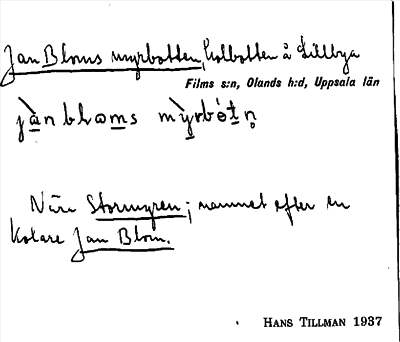 Jan Bloms myrbotten, kolbotten å Lillbya
Films s:n, Olands h:d, Uppsala län
jàn blωms mỳrbótn̥
Nära Stormyren; namnet efter en
kolare Jan Blom.
HANS TILLMAN 1937